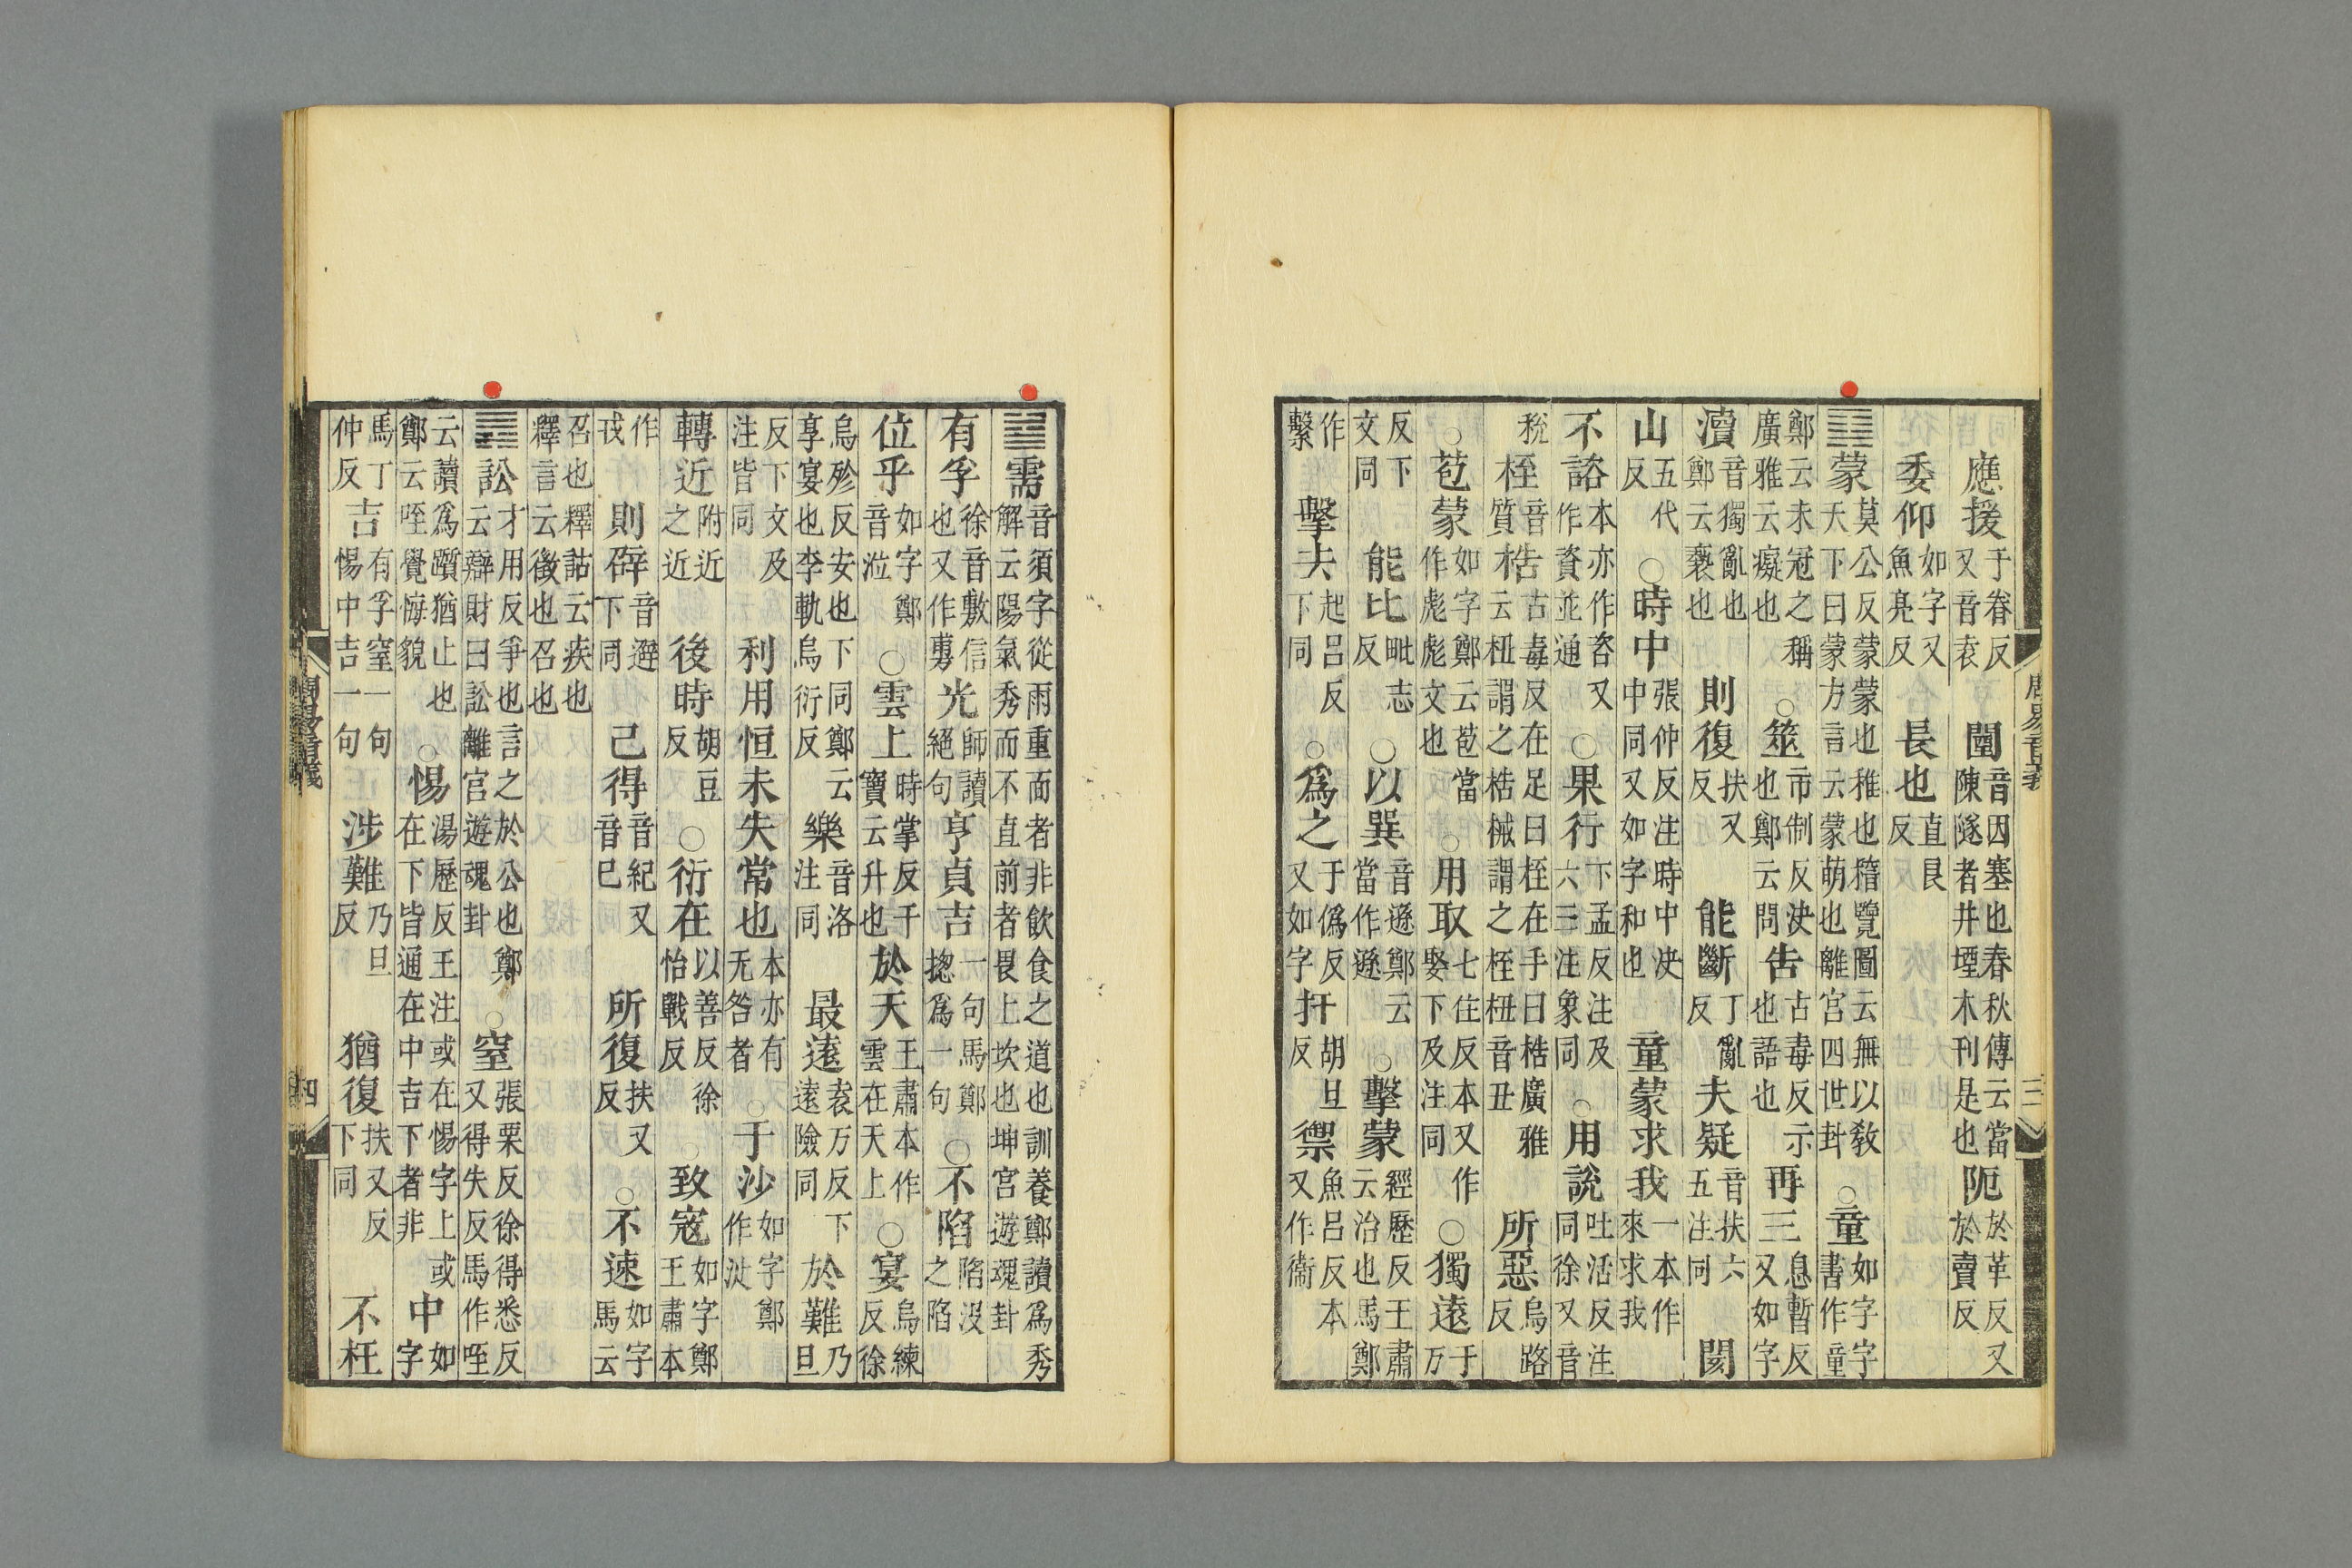 周易音義
三
應援于眷反又音袁闉音因塞也春秋傳云當陳隧者井堙木刊是也阨於革反又於賣反
委仰如字又魚亮反長也直艮反
䷃蒙莫公反蒙蒙也稚也稽覽圖云無以敎天下曰蒙方言云蒙萌也離宮四世卦○童如字字書作僮
鄭云未冠之稱廣雅云癡也○筮市制反決也鄭云問告古毒反示也語也再三息暫反又如字
瀆音獨亂也鄭云褻也則復扶又反能斷丁亂反夫疑音扶六五注同閡
山五代反○時中張仲反注時中決中同又如字和也童蒙求我一本作來求我
不諮本亦作咨又作資並通○果行下孟反注及六三注象同○用說吐活反注同徐又音
稅桎音質梏古毒反在足曰桎在手曰梏廣雅云杻謂之梏械謂之桎杻音丑所惡烏路反
○苞蒙如字鄭云苞當作彪彪文也○用取七住反本又作娶下及注同○獨遠于万
反下文同能比毗志反○以巽音遜鄭云當作遜○擊蒙經歷反王肅云治也馬鄭
作繫擊去起呂反下同○爲之于僞反又如字扞胡旦反禦魚呂反本又作衞
䷄需音須字從雨重而者非飲食之道也訓養鄭讀爲秀解云陽氣秀而不直前者畏上坎也坤宮遊魂卦
有孚徐音敷信也又作旉光師讀絕句亨貞吉一句馬鄭揔爲一句○不陷陷沒之陷
位乎如字鄭音涖○雲上時掌反干寶云升也於天王肅本作雲在天上○宴烏練反徐
烏殄反安也下同鄭云享宴也李軌烏衍反樂音洛注同最遠袁万反下遠險同於難乃旦
反下文及注皆同利用恒未失常也本亦有无咎者○于沙如字鄭作沚
轉近附近之近後時胡豆反○衍在以善反徐怡戰反○致寇如字鄭王肅本
作戎則辟音避下同己得音紀又音巳所復扶又反○不速如字馬云
召也釋詁云疾也釋言云徵也召也
䷅訟才用反爭也言之於公也鄭云辯財曰訟離宮遊魂卦○窒張栗反徐得悉反又得失反馬作咥
云讀爲躓猶止也鄭云咥覺悔貌○惕湯歷反王注或在惕字上或在下皆通在中吉下者非中如字
馬丁仲反吉有孚窒一句惕中吉一句涉難乃旦反猶復扶又反下同不枉
周易音義
四